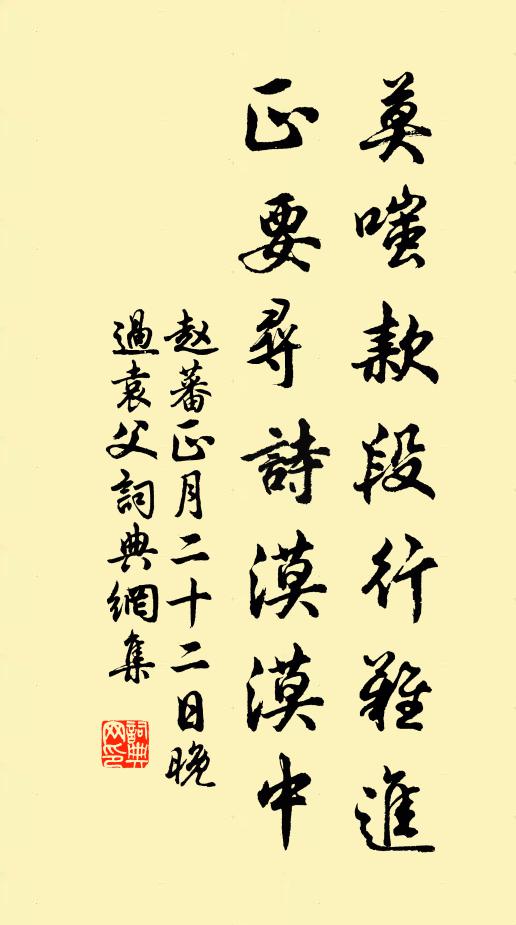 莫嗤款段行難進
正要尋詩漠漠中
趙蕃正月二十二日晚
過袁父詞典網集
詞典網印